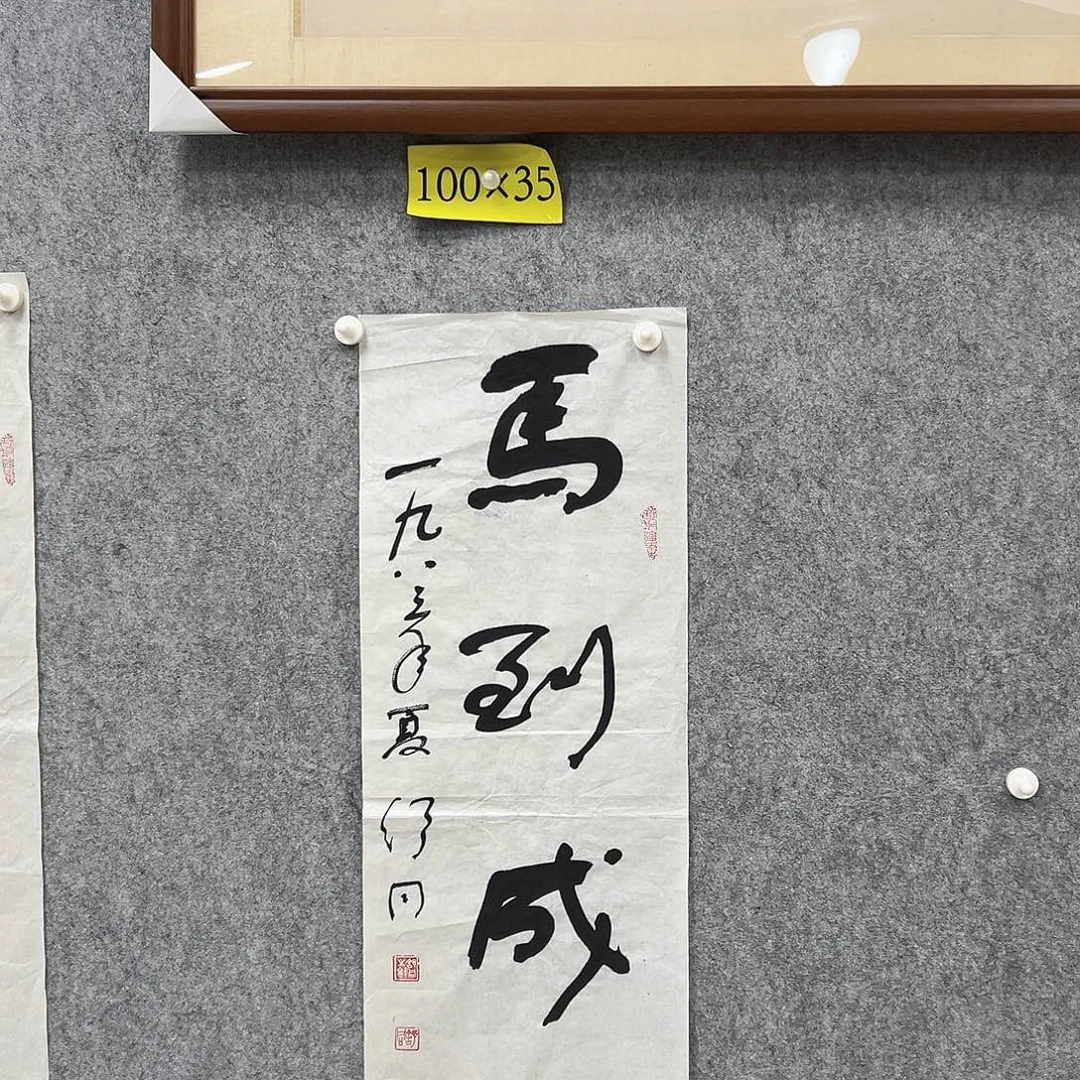 100×35
馬到成
一九八三年夏
舒同